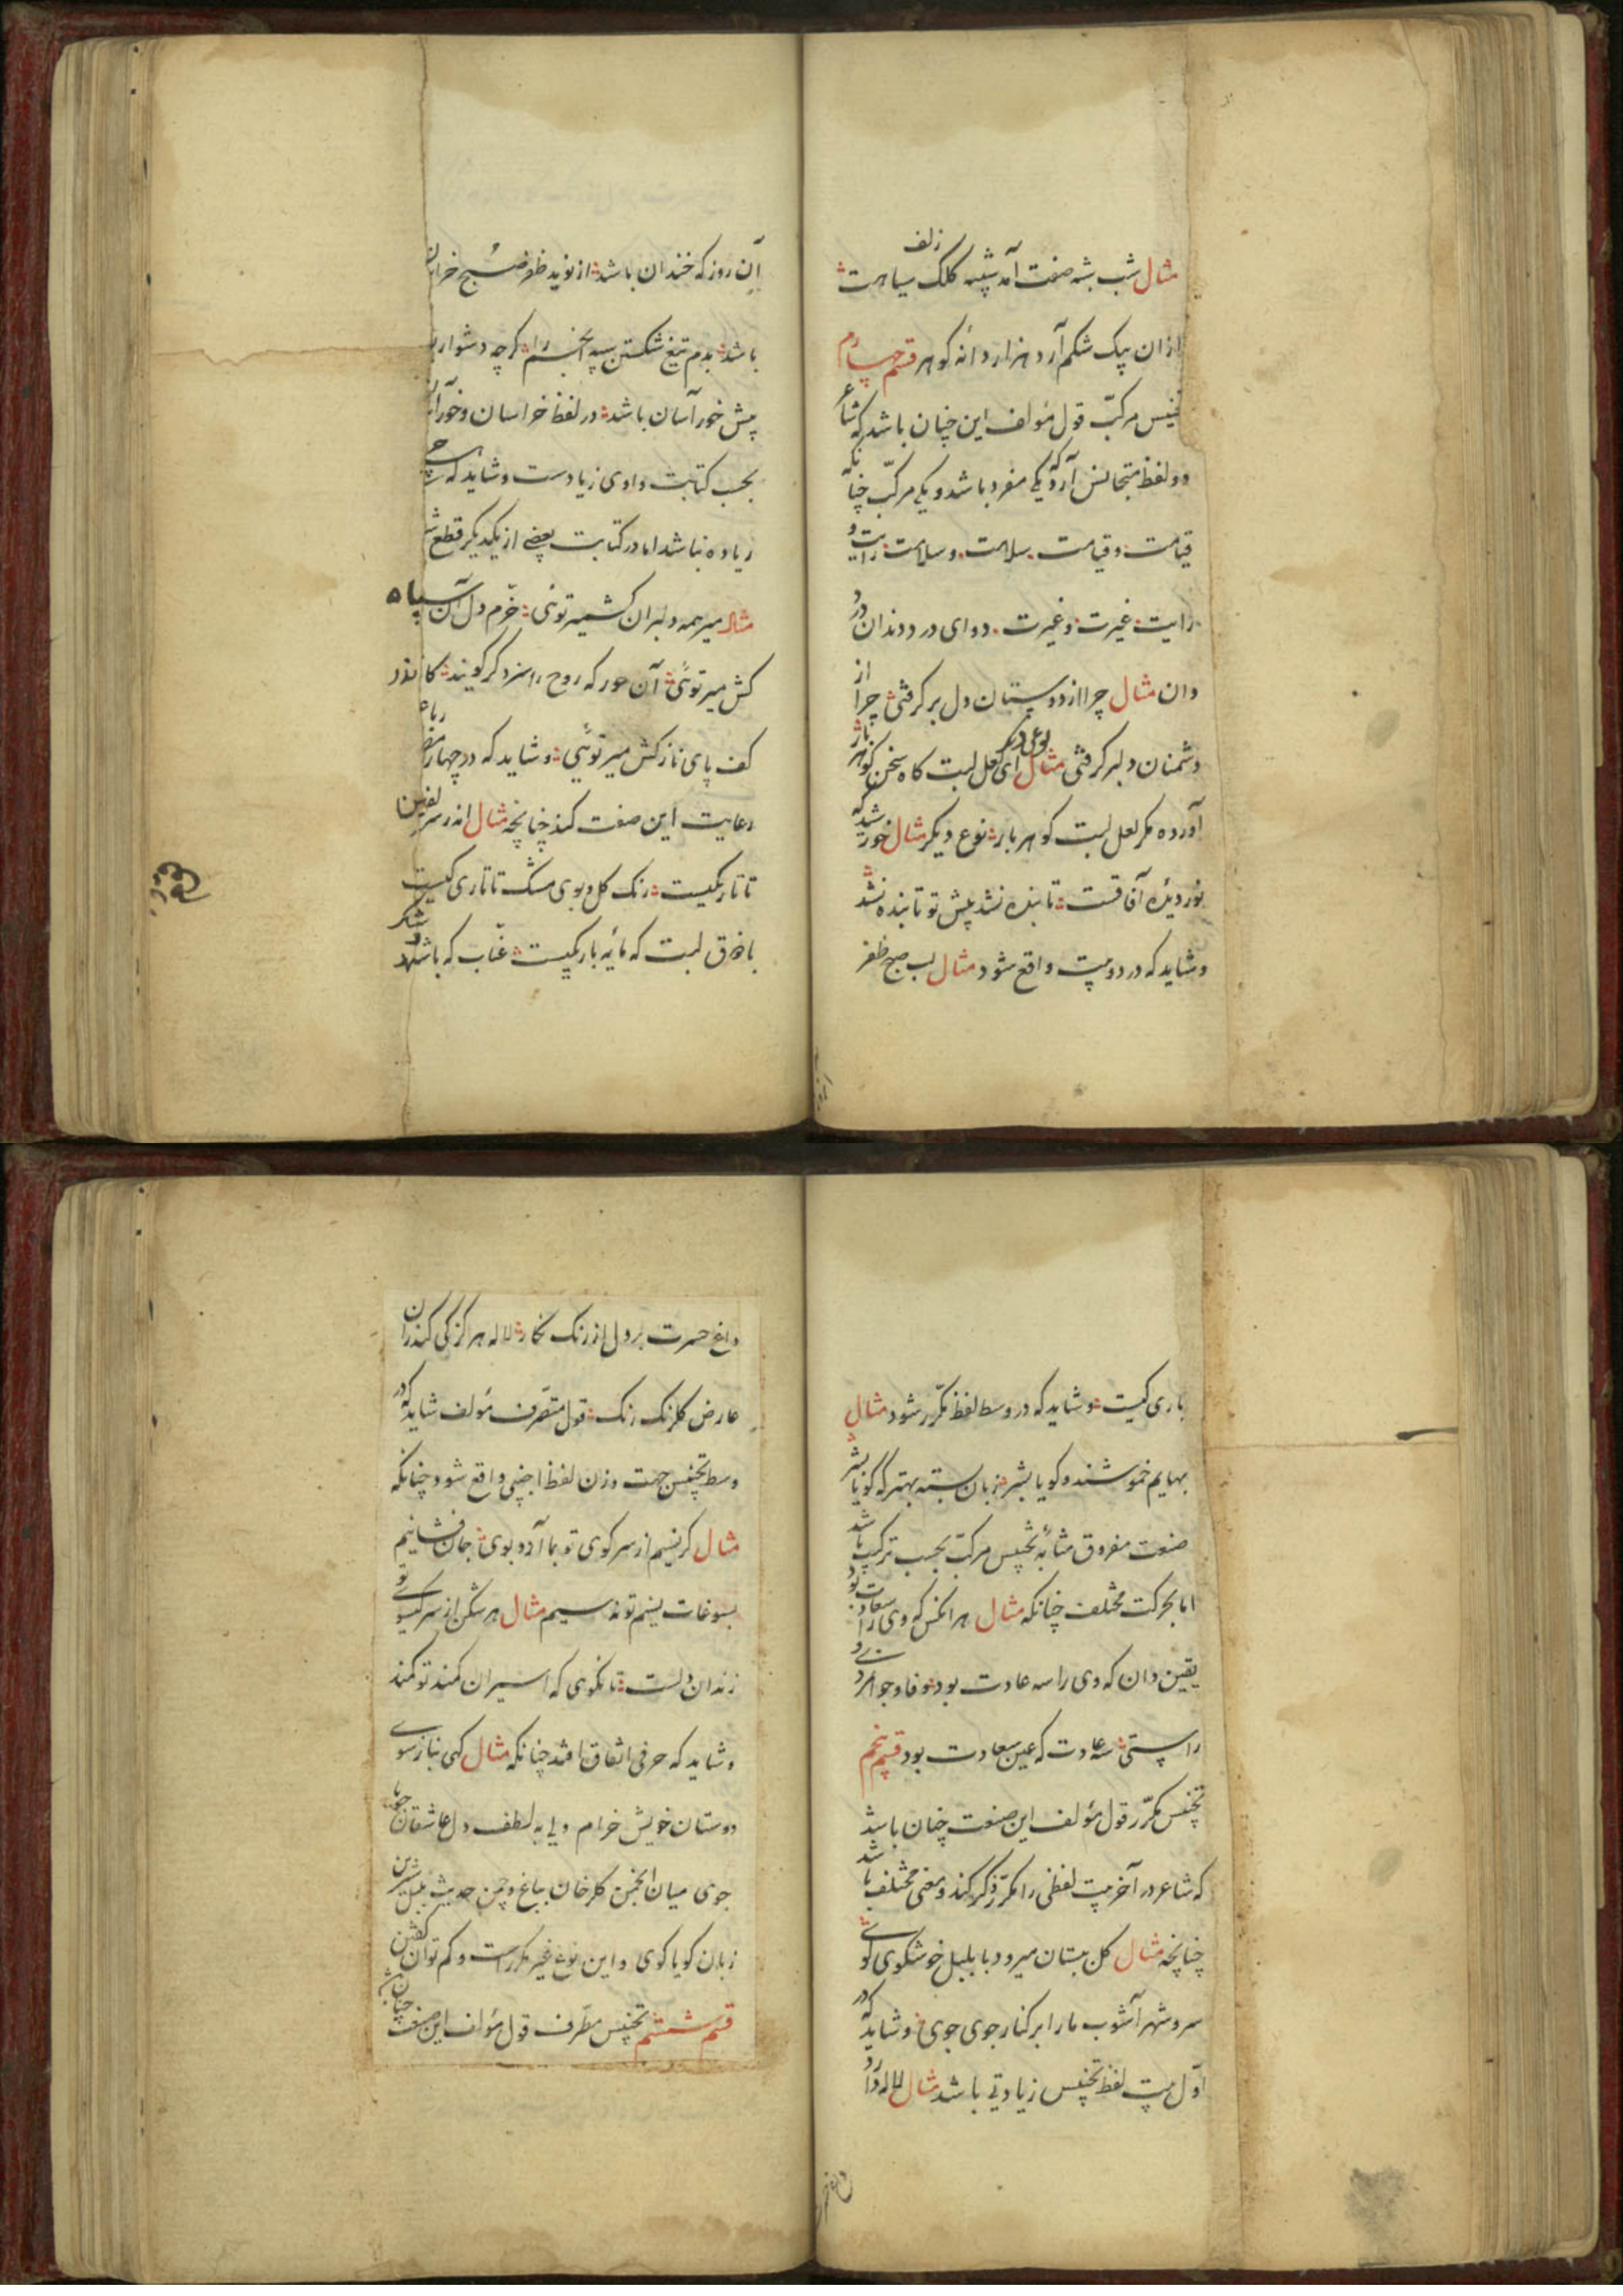 مثال شب شبه صفت آمد شبیه کلک سیاهت
زلف
ازان یک شکم آرد هزار دانه کوهر قسم چهارم
تجنیس مرکب قول مؤلف این چنان باشد که شاعر
دو لفظ متجانس آرد که یکی مفرد باشد و یکی مرکب چنانکه
قیامت و قیامت سلامت و سلامت رایت و
رایت غیرت و غیرت دوای درد دندان درد
دان مثال چرا از دوستان دل برکرفتی چرا از
دشمنان دلبر کرفتی مثال نوعی دیکر ای لعل لبت کاه سخن کوهر بار
آورده مکر لعل لبت کوهر بار نوع دیکر مثال خورشید که
نور دیده آفاقست تا بنده نشد پیش تو تابنده نشد
و شاید که در دو بیت واقع شود مثال لب صبح ظفر
آن روز که خندان باشد از نوید ظفر صبح خراسان
باشد بدم تیغ شکستن سپه انجم را کرچه دشوار
پیش خور آسان باشد در لفظ خراسان و خور آسان
بحسب کتابت واوی زیادست و شاید که
زیاده نباشد اما در کتابت بعضی از یکدیکر قطع
مثال میر همه دلبران کشمیر توئی خرم دل آن سپاه
کش میر توئی آن حور که روح را سزد کر کویند کاندر
کف پای نازکش میر توئی و شاید که در چهار مصراع
رعایت این صفت کند چنانچه مثال اندر سر زلفین
تا تاریکیست رنک کل و بوی مشک تاتاری کیست
با ذوق لبت که مایه باریکیست عناب که باشد و شکر
باری کیست و شاید که در وسط لفظ مکرر شود مثال
بهایم خموشند و کویا بشر زبان بسته بهتر که کویا بشر
صنعت مفروق مشابه تجنیس مرکب بحسب ترکیب باشد
اما بحرکت مختلف چنانکه مثال هر انکس که وی را سعادت بود
یقین دان که وی را سه عادت بود وفا و جوانمردی و
راستی سه عادت که عین سعادت بود قسم پنجم
تجنیس مکرر قول مؤلف این صنعت چنان باشد
که شاعر در آخر بیت لفظی را مکرر ذکر کند و معنی مختلف باشد
چنانچه مثال کل بستان میرود با بلبل خوشکوی کوی
سرو شهرآشوب ما را بر کنار جوی جوی و شاید که در
اول بیت لفظ تجنیس زیادتی باشد مثال لاله دارد
داغ حسرت بر دل از رنک نکار لاله هرکز کی کند زان
عارض کلرنک رنک قول متصرف مؤلف شاید که در
وسط تجنیس جهت وزن لفظ اجنبی واقع شود چنانکه
مثال کر نسیم از سر کوی تو بما آرد بوی جان فشانیم
بسوغات نسیم تو نه سیم مثال هر شکن از سر کیسوی تو
زندان دلست تا نکوی که اسیران کمند تو کمند
و شاید که حرفی اتفاق افتد چنانکه مثال کهی بناز سوی
دوستان خویش خرام ولی به لطف دل عاشقان جویا
جوی میان انجمن کلرخان بباغ و چمن حدیث بلبل شیرین
زبان کویا کوی و این نوع غیر مکررست و کم توان کفتن
قسم ششم تجنیس مطرف قول مؤلف این صنعت چنان